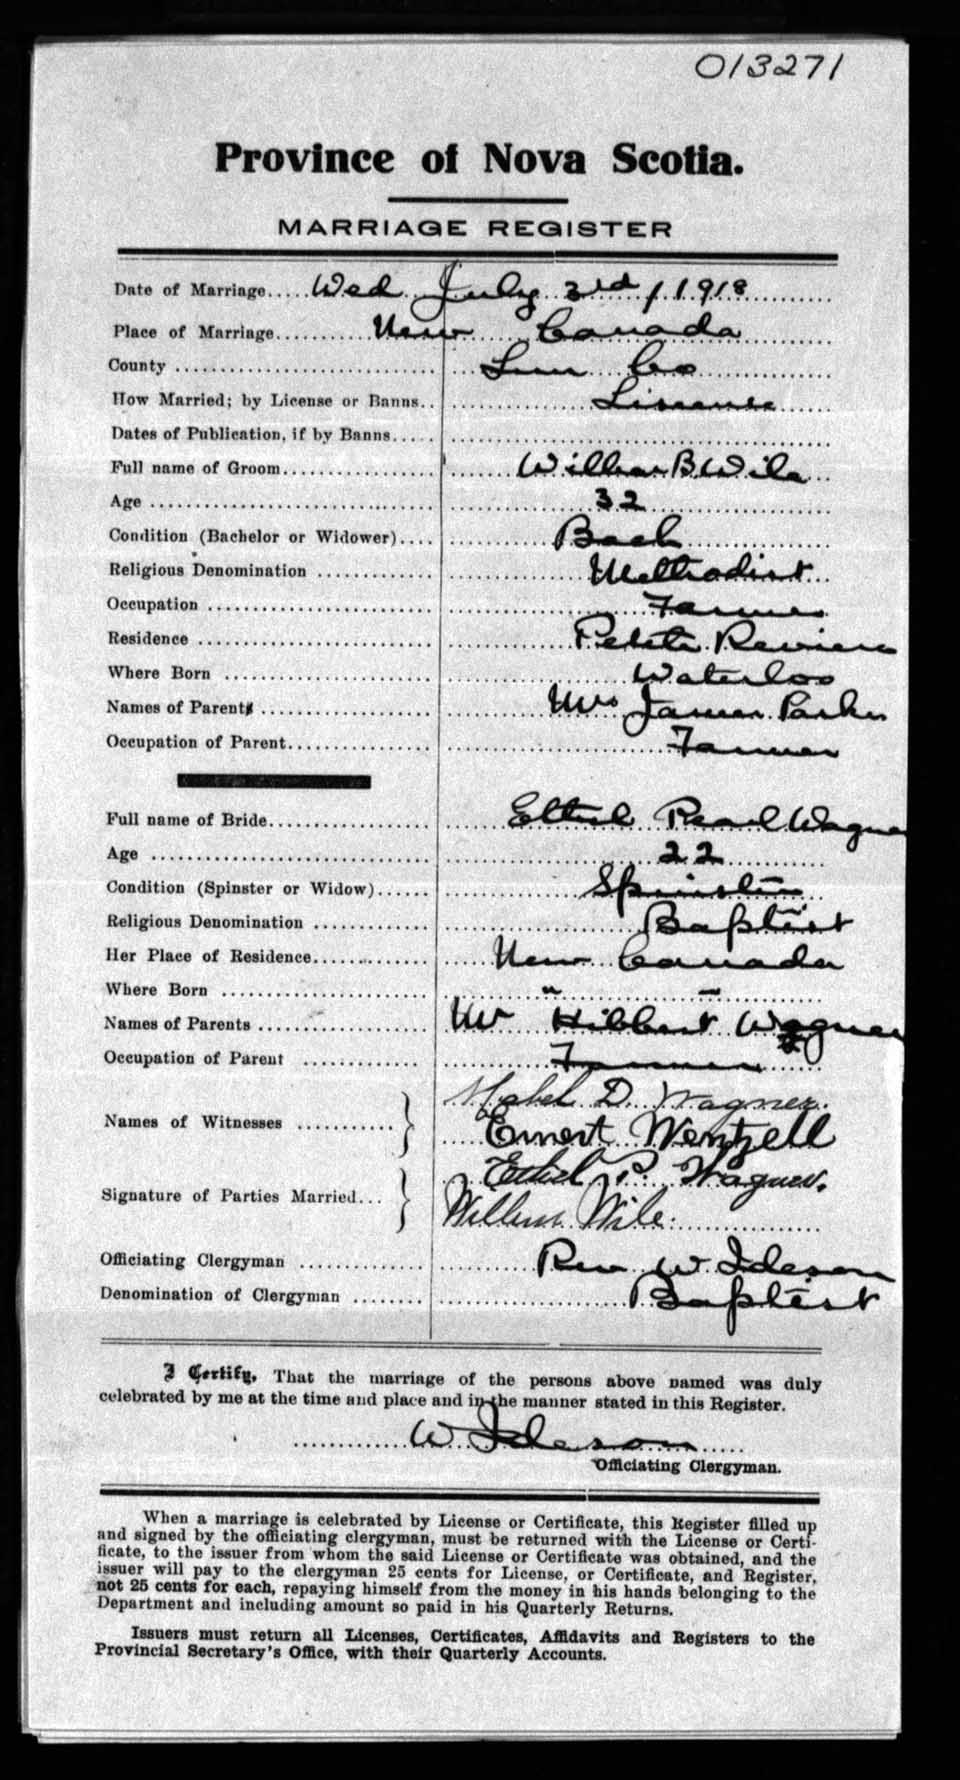 013271
Province of Nova Scotia.
MARRIAGE REGISTER
Date of Marriage..... Wed July 3rd / 1918
Place of Marriage New Canada
County Lun Co
How Married; by License or Banns.. Lisense
Dates of Publication, if by Banns.....
Full name of Groom William B. Wile
Age 32
Condition (Bachelor or Widower).... Bach
Religious Denomination Methodist
Occupation Farmer
Residence Petite Reviere
Where Born Waterloo
Names of Parents Mrs James Parks
Occupation of Parent Farmer
Full name of Bride Ethel Pearl Wagner
Age 22
Condition (Spinster or Widow)...... Spinster
Religious Denomination Baptist
Her Place of Residence New Canada
Where Born " "
Names of Parents Mr Hibbert Wagner
Occupation of Parent Farmer
Mabel D. Wagner.
Names of Witnesses Ernest Wentzell
Ethel P. Wagner.
Signature of Parties Married... William Wile.
Officiating Clergyman Rev W. Ideson
Denomination of Clergyman Baptist
I Certify, That the marriage of the persons above named was duly
celebrated by me at the time and place and in the manner stated in this Register.
W Ideson
Officiating Clergyman.
When a marriage is celebrated by License or Certificate, this Register filled up
and signed by the officiating clergyman, must be returned with the License or Certi-
ficate, to the issuer from whom the said License or Certificate was obtained, and the
issuer will pay to the clergyman 25 cents for License, or Certificate, and Register,
not 25 cents for each, repaying himself from the money in his hands belonging to the
Department and including amount so paid in his Quarterly Returns.
Issuers must return all Licenses, Certificates, Affidavits and Registers to the
Provincial Secretary's Office, with their Quarterly Accounts.